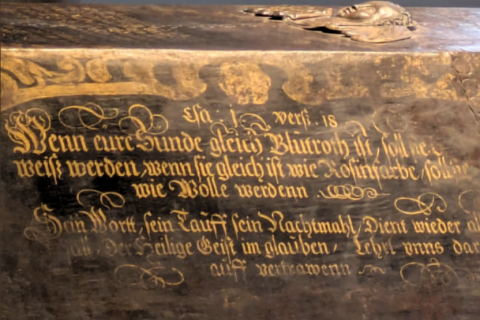 Esa. 1 verß. 18
Wenn eure Sunde gleich Blutroth ist, soll
weiß werden, wenn sie gleich ist wie Rosinfarbe, soll
wie Wolle werdenn
Sein Wortt, sein Tauff sein Nachtmahl, Dient wieder
Der Heilige Geist im glauben, Lehrt vnns
auff vertrawenn